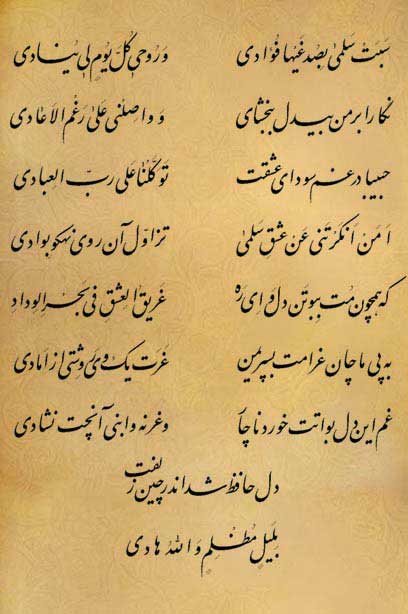 سَبَتْ سَلْمیٰ بِصُدْغَیْها فُؤادی وَ رُوحی کُلَّ یَوْمٍ لی یُنادی
نگارا بر من بیدل ببخشای و واصِلْنی عَلیٰ رَغْمِ الاَعادی
حبیبا در غم سودای عشقت تَوَکَّلْنا عَلیٰ رَبِّ العِبادی
اَ مَنْ اَنْکَرْتَنی عَنْ عِشْقِ سَلْمیٰ تز اوّل آن روی نهکو بوادی
که همچون مُت ببوتن دل و ای ره غَریقُ العِشْقِ فی بَحْرِ الوِدادِ
به پی ماچان غرامت بسپریمن غَرَت یک وی روشتی از اَمادی
غم این دل بواتت خورد ناچار و غر نه وابنی آنچت نشادی
دل حافظ شد اندر چین زلفت
بِلَیْلٍ مُظْلِمٍ وَاللهُ هادی